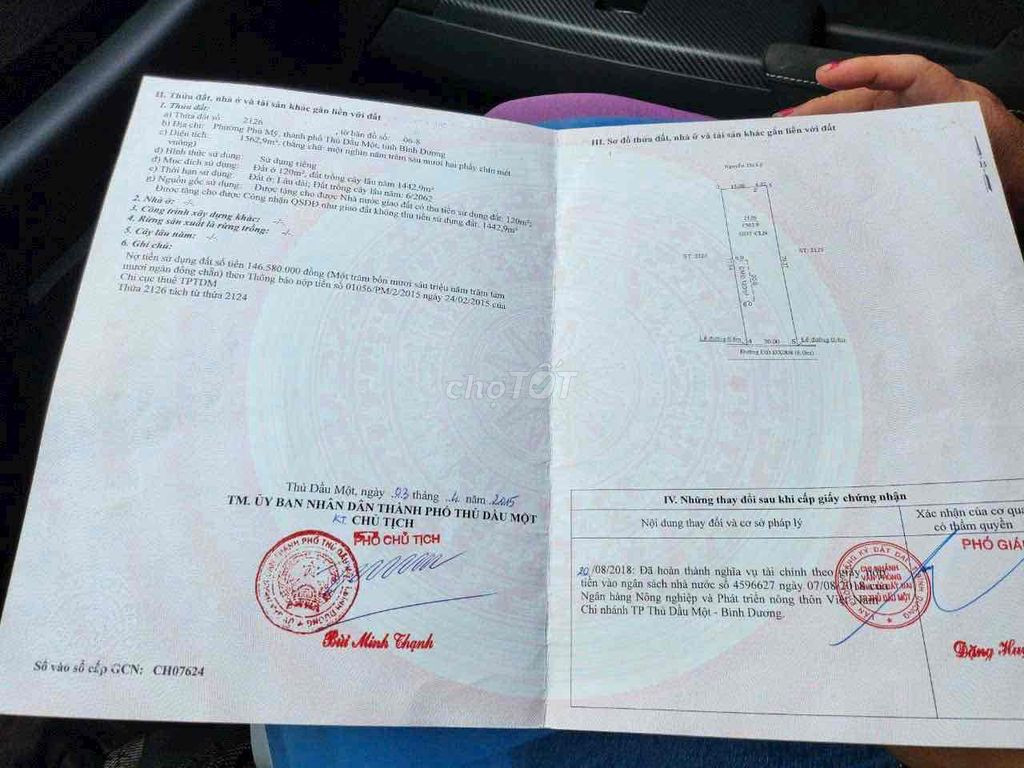 II. Thửa đất, nhà ở và tài sản khác gắn liền với đất
1. Thửa đất:
a) Thửa đất số: 2126 , tờ bản đồ số: 06-8
b) Địa chỉ: Phường Phú Mỹ, thành phố Thủ Dầu Một, tỉnh Bình Dương
c) Diện tích: 1562,9m², (bằng chữ: một nghìn năm trăm sáu mươi hai phẩy chín mét
vuông)
d) Hình thức sử dụng: Sử dụng riêng
đ) Mục đích sử dụng: Đất ở 120m², đất trồng cây lâu năm 1442.9m²
e) Thời hạn sử dụng: Đất ở: Lâu dài; Đất trồng cây lâu năm: 6/2062
g) Nguồn gốc sử dụng: Được tặng cho được Nhà nước giao đất có thu tiền sử dụng đất: 120m²;
Được tặng cho được Công nhận QSDĐ như giao đất không thu tiền sử dụng đất: 1442,9m²
2. Nhà ở: -/-
3. Công trình xây dựng khác: -/-
4. Rừng sản xuất là rừng trồng: -/-
5. Cây lâu năm: -/-
6. Ghi chú:
Nợ tiền sử dụng đất số tiền 146.580.000 đồng (Một trăm bốn mươi sáu triệu năm trăm tám
mươi ngàn đồng chẵn) theo Thông báo nộp tiền số 01056/PM/2/2015 ngày 24/02/2015 của
Chi cục thuế TPTDM
Thửa 2126 tách từ thửa 2124
Thủ Dầu Một, ngày 03 tháng 4 năm 2015
TM. ỦY BAN NHÂN DÂN THÀNH PHỐ THỦ DẦU MỘT
KT. CHỦ TỊCH
PHÓ CHỦ TỊCH
Bùi Minh Thạnh
Số vào sổ cấp GCN: CH07624
III. Sơ đồ thửa đất, nhà ở và tài sản khác gắn liền với đất
2126
ST: 2125
Lề đường 20.00 Lề đường
IV. Những thay đổi sau khi cấp giấy chứng nhận
Nội dung thay đổi và cơ sở pháp lý
Xác nhận của cơ qua
có thẩm quyền
PHÓ GIÁ
20/08/2018: Đã hoàn thành nghĩa vụ tài chính theo giấy nộp
tiền vào ngân sách nhà nước số 4596627 ngày 07/08/2018 của
Ngân hàng Nông nghiệp và Phát triển nông thôn Việt Nam -
Chi nhánh TP Thủ Dầu Một - Bình Dương.
CHI NHÁNH
VĂN PHÒNG
THỦ DẦU MỘT
Đặng Hu
chợTỐT